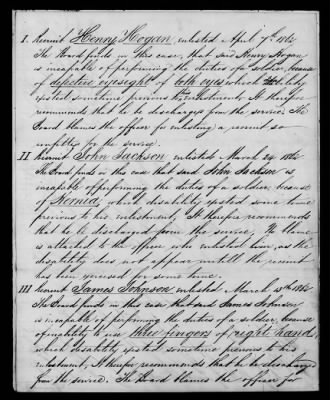 I. Recruit Henry Hogan, enlisted April 7th 1864
The Board finds in this case, that said Henry Hogan
is incapable of performing the duties of a soldier because
of defective eyesight of both eyes which disability
existed sometime previous to enlistment, It therefor
recommends that he be discharged from the service. The
Board blames the officer for enlisting a recruit so
unfitted for the service.
II Recruit John Jackson enlisted March 24 1864
The Board finds in this case that said John Jackson is
incapable of performing the duties of a soldier because
of Hernia, which disability existed some time
previous to his enlistment, It therefor recommends
that he be discharged from the service, No blame
is attached to the officer who enlisted him, as the
disability does not appear untill the recruit
has been exercised for some time.
III Recruit James Johnson enlisted March 15th 1864
The Board finds in this case that said James Johnson
is incapable of performing the duties of a soldier, because
of inability to use three fingers of right hand,
which disability existed sometime previous to his
enlistment, It therefor recommends that he be discharged
from the service. The Board blames the officer for